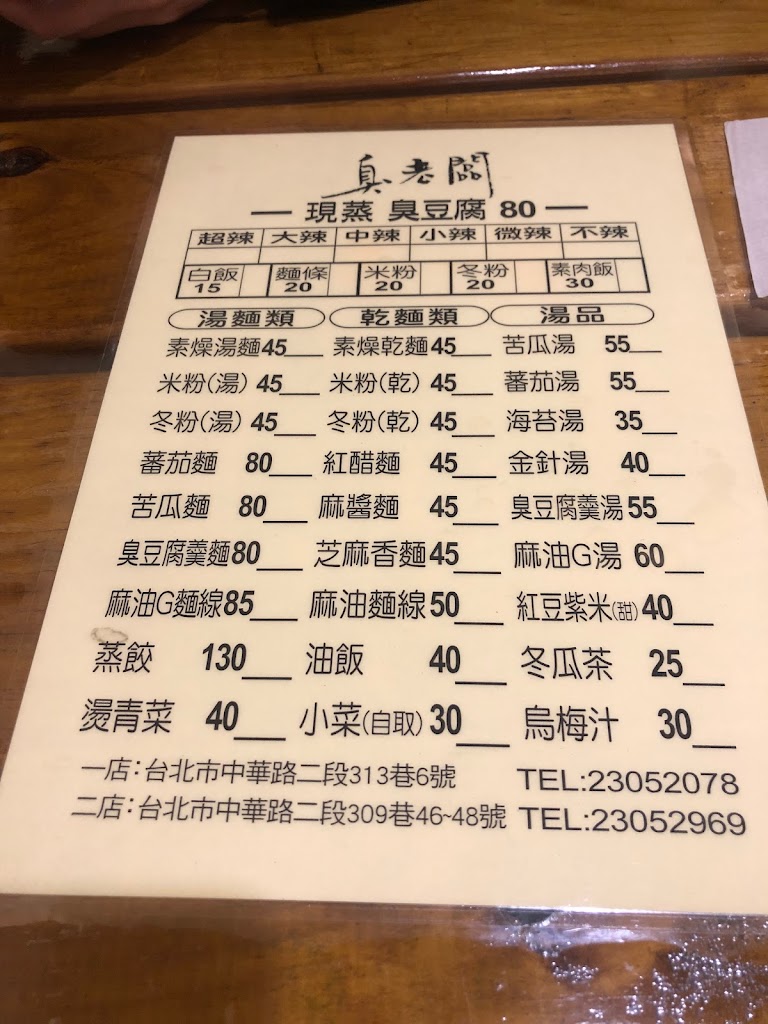 臭老闆
現蒸 臭豆腐 80
超辣 大辣 中辣 小辣 微辣 不辣
白飯 15 麵條 20 米粉 20 冬粉 20 素肉飯 30
湯麵類 乾麵類 湯品
素燥湯麵45 素燥乾麵45 苦瓜湯 55
米粉(湯) 45 米粉(乾) 45 蕃茄湯 55
冬粉(湯) 45 冬粉(乾) 45 海苔湯 35
蕃茄麵 80 紅醋麵 45 金針湯 40
苦瓜麵 80 麻醬麵 45 臭豆腐羹湯55
臭豆腐羹麵80 芝麻香麵45 麻油G湯 60
麻油G麵線85 麻油麵線50 紅豆紫米(甜)40
蒸餃 130 油飯 40 冬瓜茶 25
燙青菜 40 小菜(自取)30 烏梅汁 30
一店：台北市中華路二段313巷6號 TEL:23052078
二店：台北市中華路二段309巷46~48號 TEL:23052969